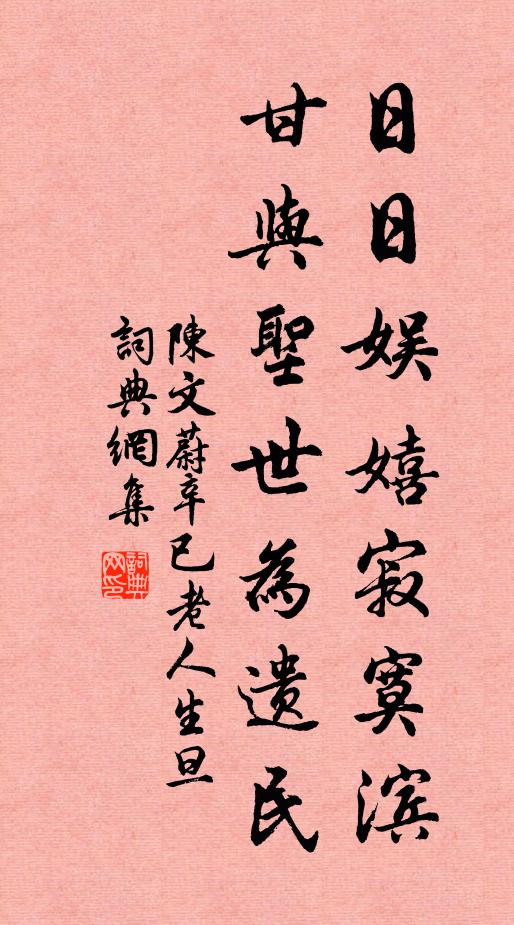 日日娛嬉寂寞濱
甘與聖世為遺民
陳文蔚辛巳老人生旦
詞典網集
詞典网印